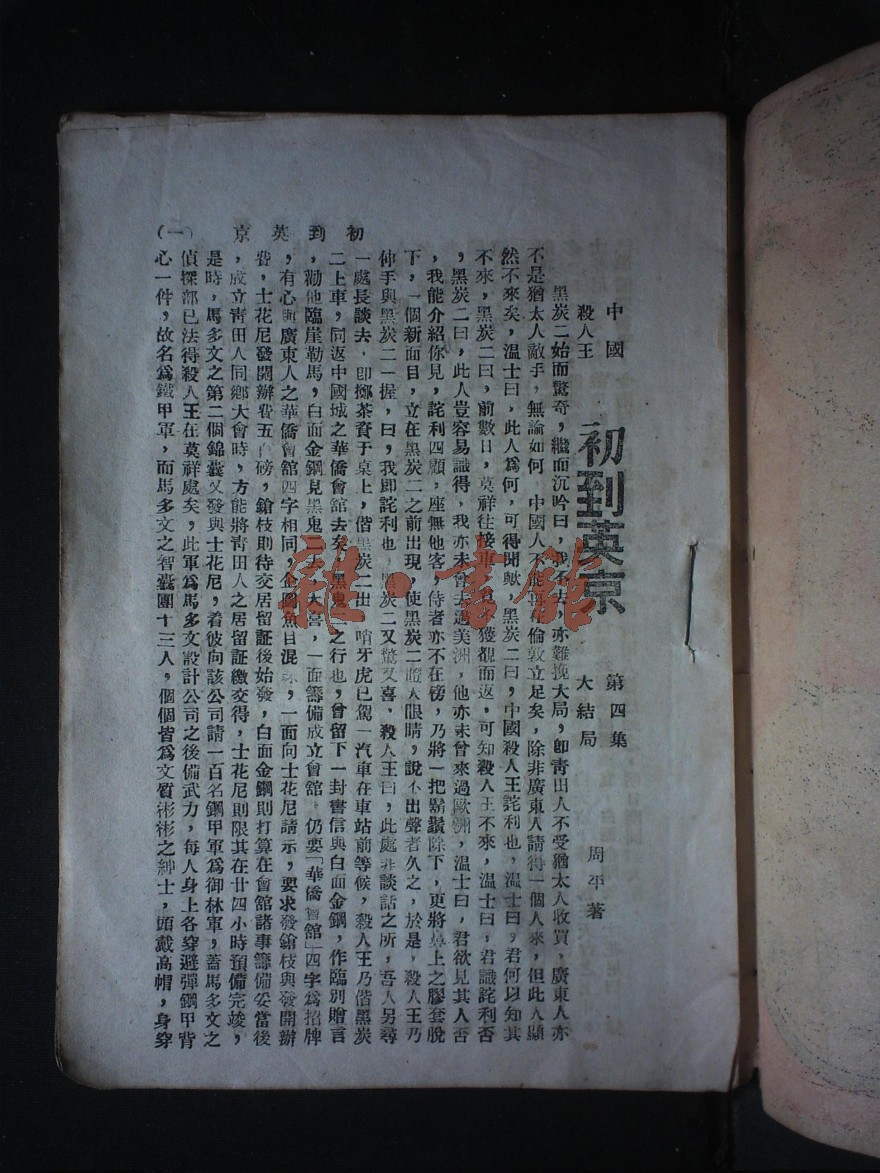 中國
殺人王
初到英京
第四集
大結局
周平著
黑炭二始而驚奇，繼而沉吟曰，我 去，亦難挽大局，即靑田人不受猶太人收買，廣東人亦
不是猶太人敵手，無論如何，中國人不能再在倫敦立足矣，除非廣東人請得一個人來，但此人顯
然不來矣，温士曰，此人爲何，可得聞歟，黑炭二曰，中國殺人王詫利也，温士曰，君何以知其
不來，黑炭二曰，前數日，莫祥往接車， 獲覩而返，可知殺人王不來，温士曰，君識詫利否
，黑炭二曰，此人豈容易識得，我亦未曾去過美洲，他亦未曾來過歐洲，温士曰，君欲見其人否
，我能介紹你見，詫利四顧，座無他客，侍者亦不在傍，乃將一把鬍鬚除下，更將鼻上之膠套脫
下，一個新面目，立在黑炭二之前出現，使黑炭二瞪大眼睛，說不出聲者久之，於是，殺人王乃
伸手與黑炭二一握，曰，我即詫利也，黑炭二又驚又喜，殺人王曰，此處非談話之所，吾人另尋
一處長談去，即擲茶資于桌上，偕黑炭二出，哨牙虎已駕一汽車在車站前等候，殺人王乃偕黑炭
二上車，同返中國城之華僑會舘去矣，黑鬼 之行也，曾留下一封書信與白面金鋼，作臨別贈言
，勸他臨崖勒馬，白面金鋼見黑鬼 去，大喜，一面籌備成立會舘，仍要「華僑會舘」四字爲招牌
，有心與廣東人之華僑會舘四字相同，企圖魚目混珠，一面向士花尼請示，要求發鎗枝與發開辦
費，士花尼發開辦費五百磅，鎗枝則待交居留証後始發，白面金鋼則打算在會舘諸事籌備妥當後
，成立靑田人同鄉大會時，方能將靑田人之居留証繳交得，士花尼則限其在廿四小時預備完竣，
是時，馬多文之第二個錦囊又發與士花尼，着彼向該公司請一百名鋼甲軍爲御林軍，蓋馬多文之
偵探部已法得殺人王在莫祥處矣，此軍爲馬多文設計公司之後備武力，每人身上各穿避彈鋼甲背
心一件，故名爲鐵甲軍，而馬多文之智囊團十三人，個個皆爲文質彬彬之紳士，頭戴高帽，身穿
初到英京
（一）
雜·書館